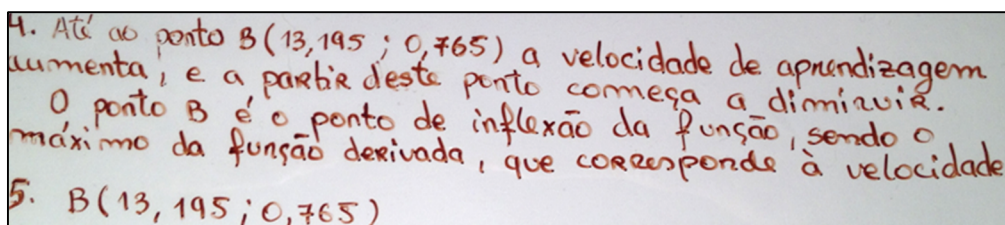 4. Até ao ponto B(13,195 ; 0,765) a velocidade de aprendizagem
aumenta, e a partir deste ponto começa a diminuir.
O ponto B é o ponto de inflexão da função, sendo o
máximo da função derivada, que corresponde à velocidade
5. B(13,195 ; 0,765)